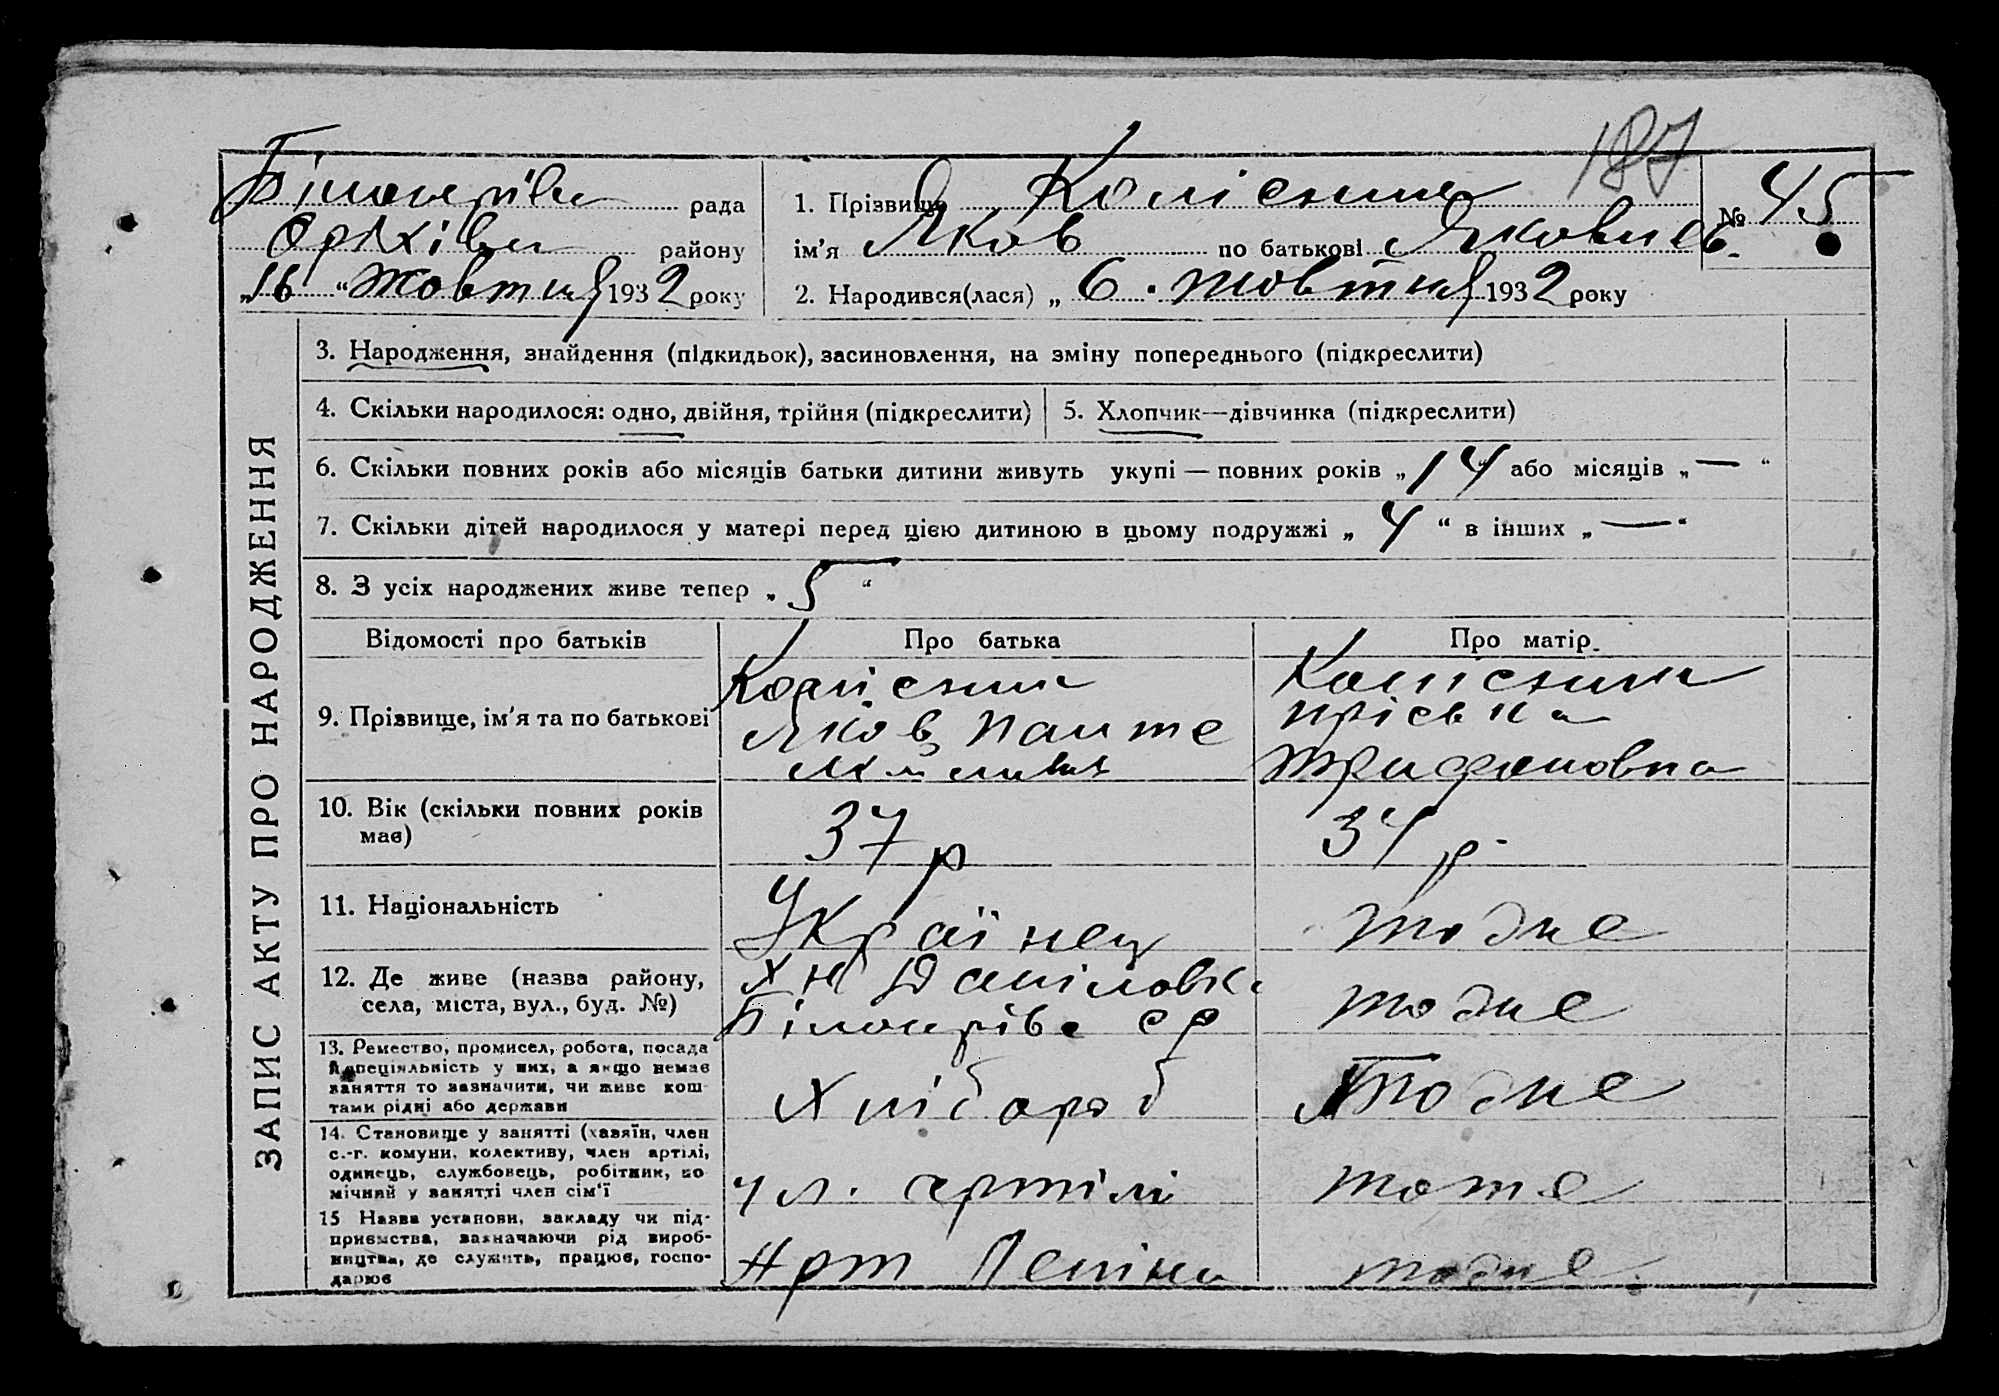 187
Білогірівс рада
Оріхівсь району
„16“ Жовтня 1932 року
1. Прізвище Колісник
№ 45
ім'я Яков по батькові Яковлев.
2. Народився(лася) „ 6. Жовтня 1932 року
ЗАПИС АКТУ ПРО НАРОДЖЕННЯ
3. Народження, знайдення (підкидьок), засиновлення, на зміну попереднього (підкреслити)
4. Скільки народилося: одно, двійня, трійня (підкреслити)
5. Хлопчик—дівчинка (підкреслити)
6. Скільки повних років або місяців батьки дитини живуть укупі — повних років „14“ або місяців „—“
7. Скільки дітей народилося у матері перед цією дитиною в цьому подружжі „4“ в інших „—“
8. З усіх народжених живе тепер „5“
Відомості про батьків Про батька Про матір
9. Прізвище, ім'я та по батькові
Колісник
Яков Панте
Колісник
Пріська
Трифоновна
10. Вік (скільки повних років
має)
37 р
34 р.
11. Національність
Українец
тодне
12. Де живе (назва району,
села, міста, вул., буд. №)
Даніловка
с р
тодне
13. Ремество, промисел, робота, посада
й спеціяльність у них, а якщо немає
заняття то зазначити, чи живе кош-
тами рідні або держави
Хлібороб
тодне
14. Становище у занятті (хазяїн, член
с.-г. комуни, колективу, член артілі,
одинець, службовець, робітник, по
мічний у занятті член сім'ї
чл. артілі
тоте
15 Назва установи, закладу чи під-
приємства, зазначаючи рід вироб-
ництва, де служить, працює, госпо-
дарює
Арт Леніна
тодне.